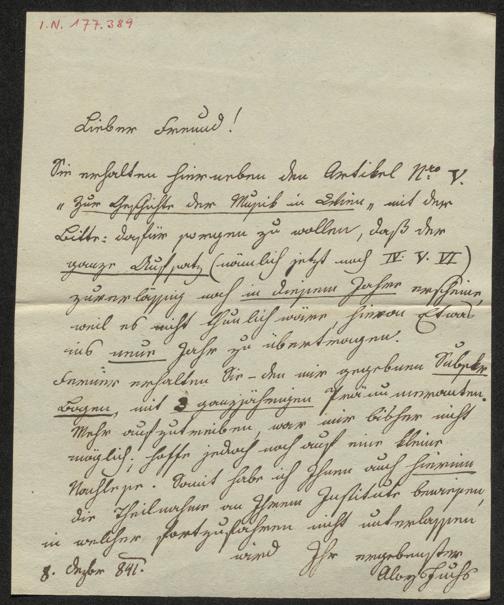 I.N. 177.389
Lieber Freund!
Sie erhalten hierneben den Artikel Nro V.
"Zur Geschichte der Musik in Wien" mit der
Bitte: dafür sorgen zu wollen, daß der
ganze Aufsatz (nämlich jetzt noch IV. V. VI)
zuverlässig noch in diesem Jahre erscheine,
weil es nicht thunlich wäre hievon Etwas
ins neue Jahr zu übertragen.
Ferner erhalten Sie – den mir gegebenen Subskr
Bogen, mit 3 ganzjährigen Pränumeranten.
Mehr aufzutreiben, war mir bisher nicht
möglich; hoffe jedoch noch auf eine kleine
Nachlese. Somit habe ich Ihnen auch hierinn
die Theilnahme an Ihrem Institute bewiesen,
in welcher fortzufahren nicht unterlassen
wird Ihr ergebenster
8. Dezbr 841. Aloys Fuchs